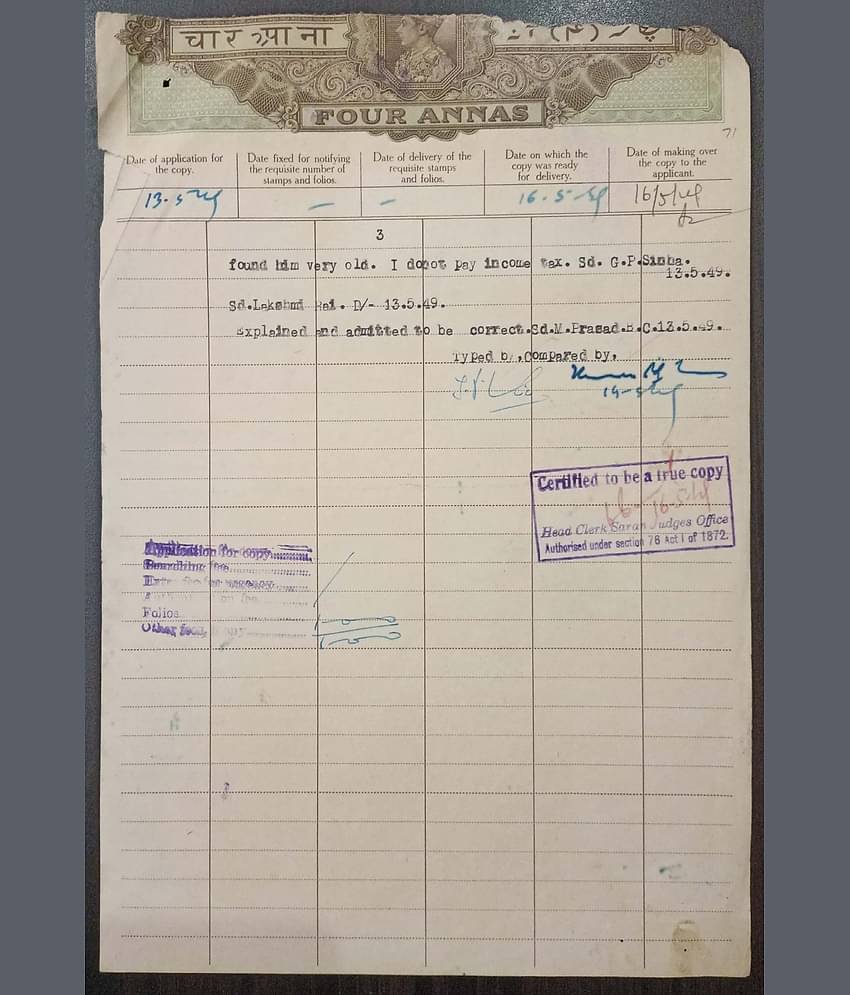 चार आना
FOUR ANNAS
71
Date of application for the copy.
Date fixed for notifying the requisite number of stamps and folios.
Date of delivery of the requisite stamps and folios.
Date on which the copy was ready for delivery.
Date of making over the copy to the applicant.
13-5-49
—
—
16-5-49
16/5/49
3
found him very old. I donot pay income tax. Sd. G.P.Sinha.
13.5.49.
Sd.Lakshmi Rai. D/- 13.5.49.
Explained and admitted to be correct.Sd.M.Prasad.B.C.13.5.49.
Typed by, Compared by,
Certified to be a true copy
16-5-49
Head Clerk Saran Judges Office
Authorised under section 76 Act I of 1872.
Application for copy
Searching fee
Folios
Other fees,